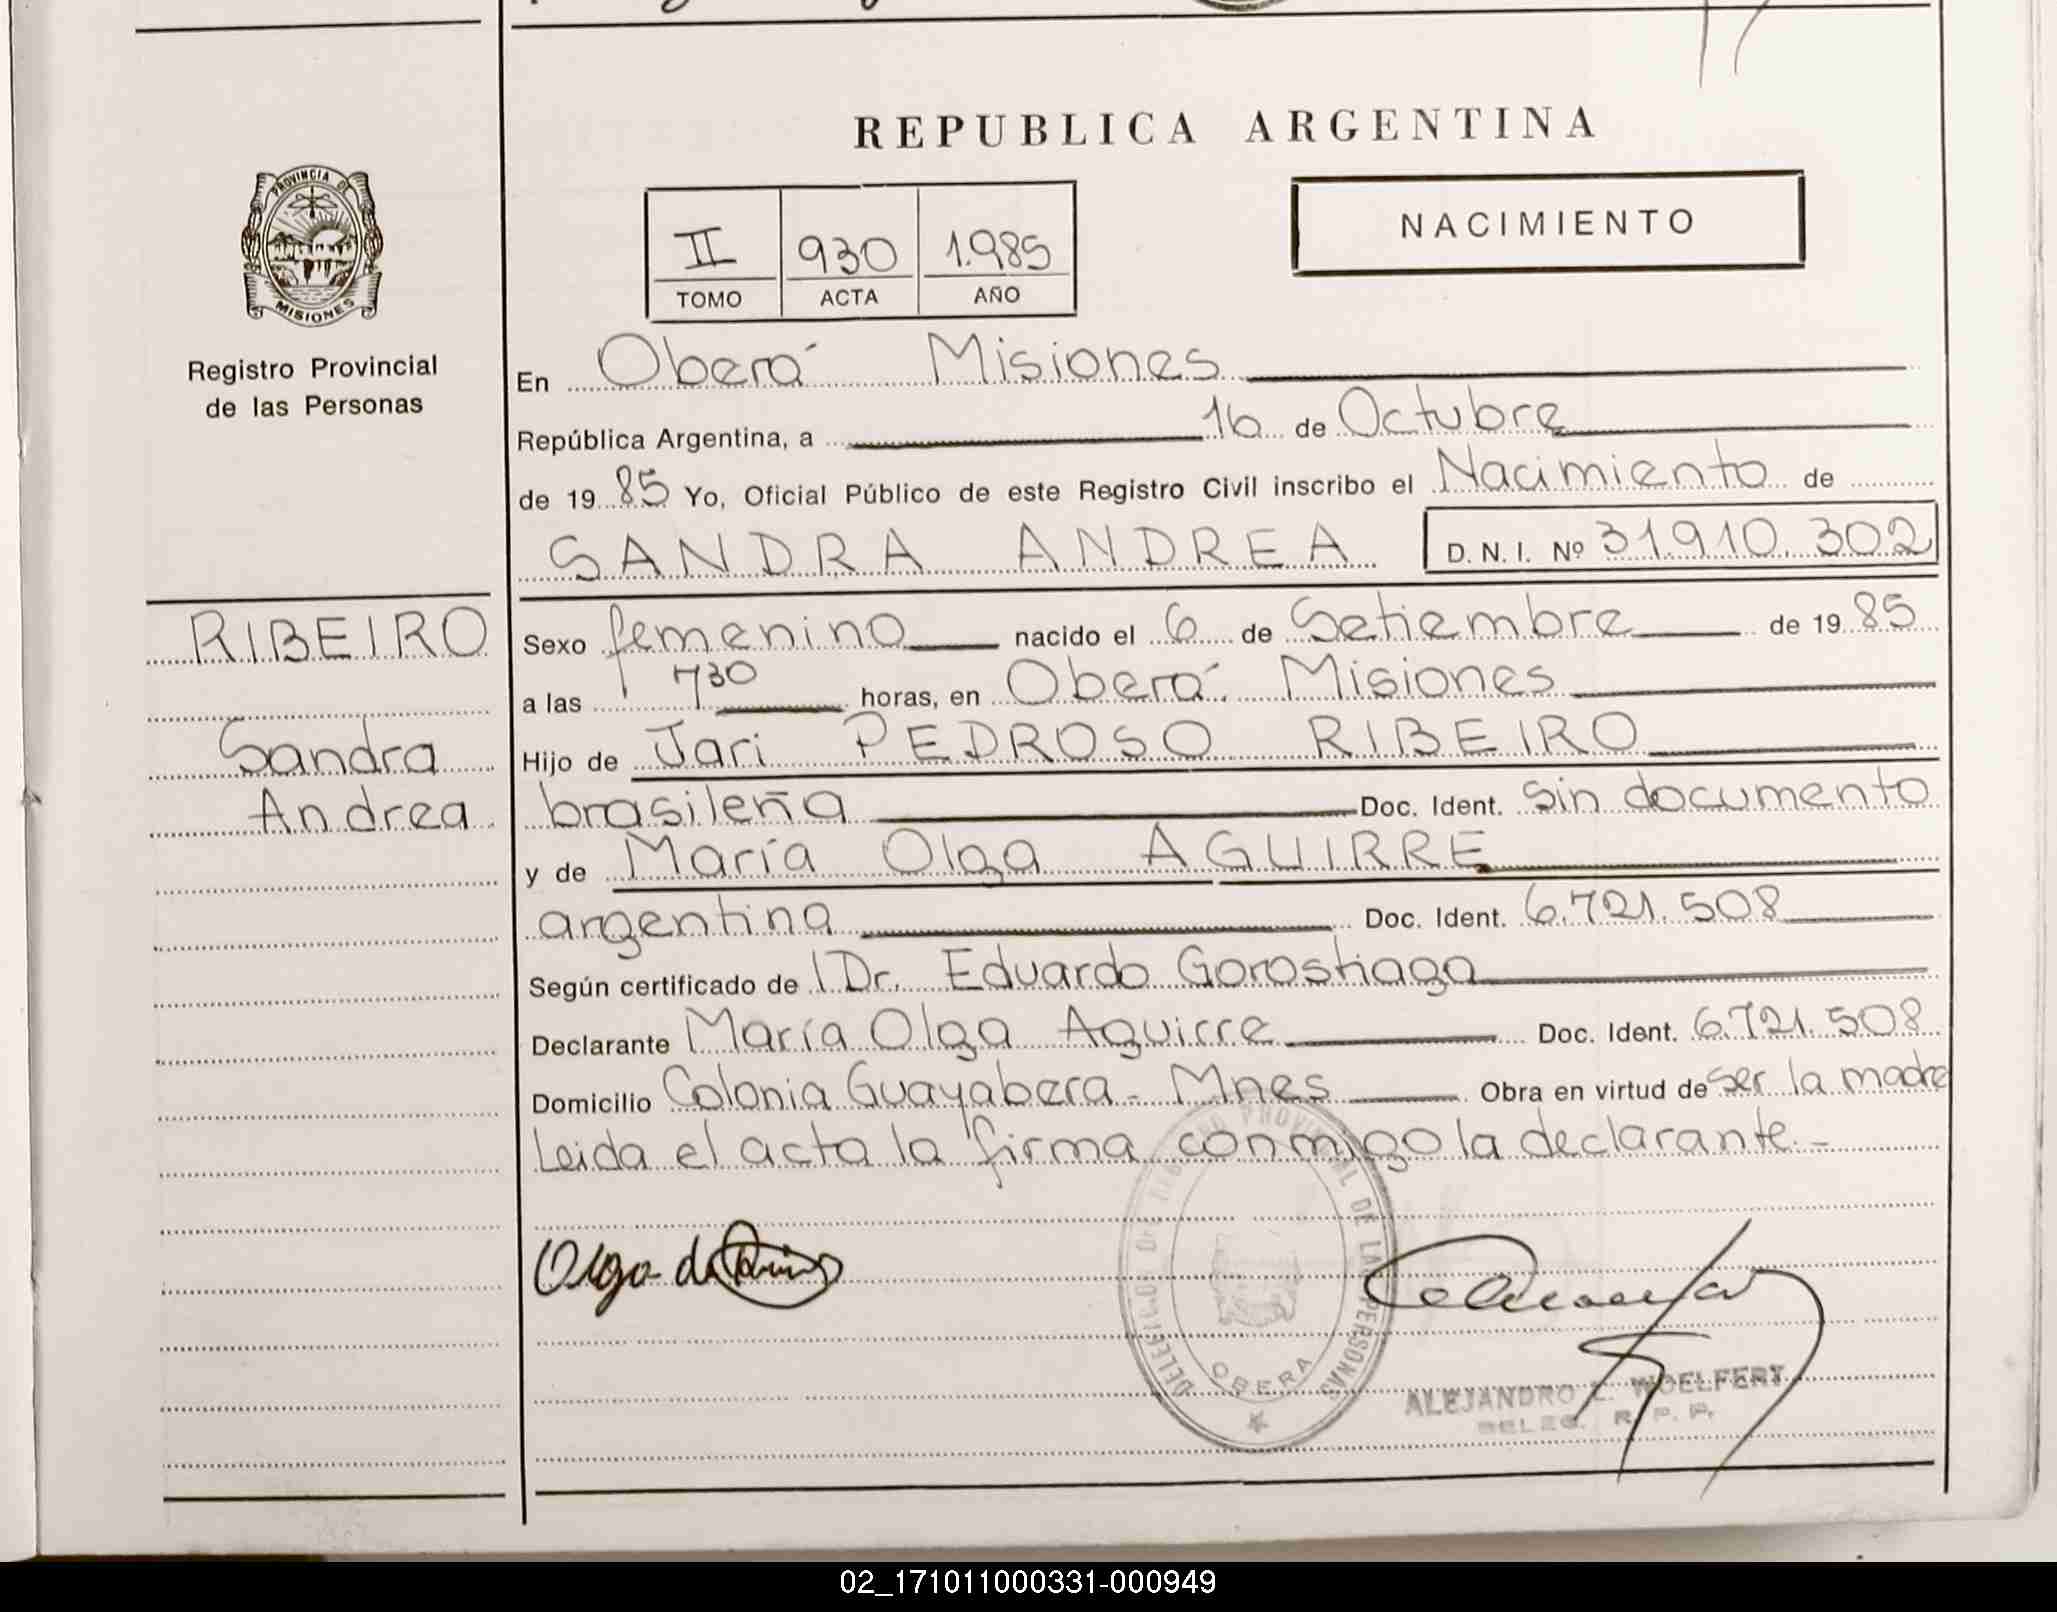 REPUBLICA ARGENTINA
PROVINCIA DE
MISIONES
Registro Provincial
de las Personas
II 930 1.985
TOMO ACTA AÑO
NACIMIENTO
En Oberá Misiones
República Argentina, a 16 de Octubre
de 19 85 Yo, Oficial Público de este Registro Civil inscribo el Nacimiento de
SANDRA ANDREA D. N. I. Nº 31.910.302
RIBEIRO
Sandra
Andrea
Sexo femenino nacido el 6 de Setiembre de 19 85
a las 730 horas, en Oberá Misiones
Hijo de Jari PEDROSO RIBEIRO
brasileña Doc. Ident. sin documento
y de María Olga AGUIRRE
argentina Doc. Ident. 6.721.508
Según certificado de Dr. Eduardo Gorostiaga
Declarante María Olga Aguirre Doc. Ident. 6.721.508
Domicilio Colonia Guayabera - Mnes Obra en virtud de ser la madre
Leida el acta la firma conmigo la declarante.-
Olga de
PROVINCIAL DE LAS PERSONAS
OBERA
ALEJANDRO WOELFERT
DELEG. R. P. P.
02_171011000331-000949